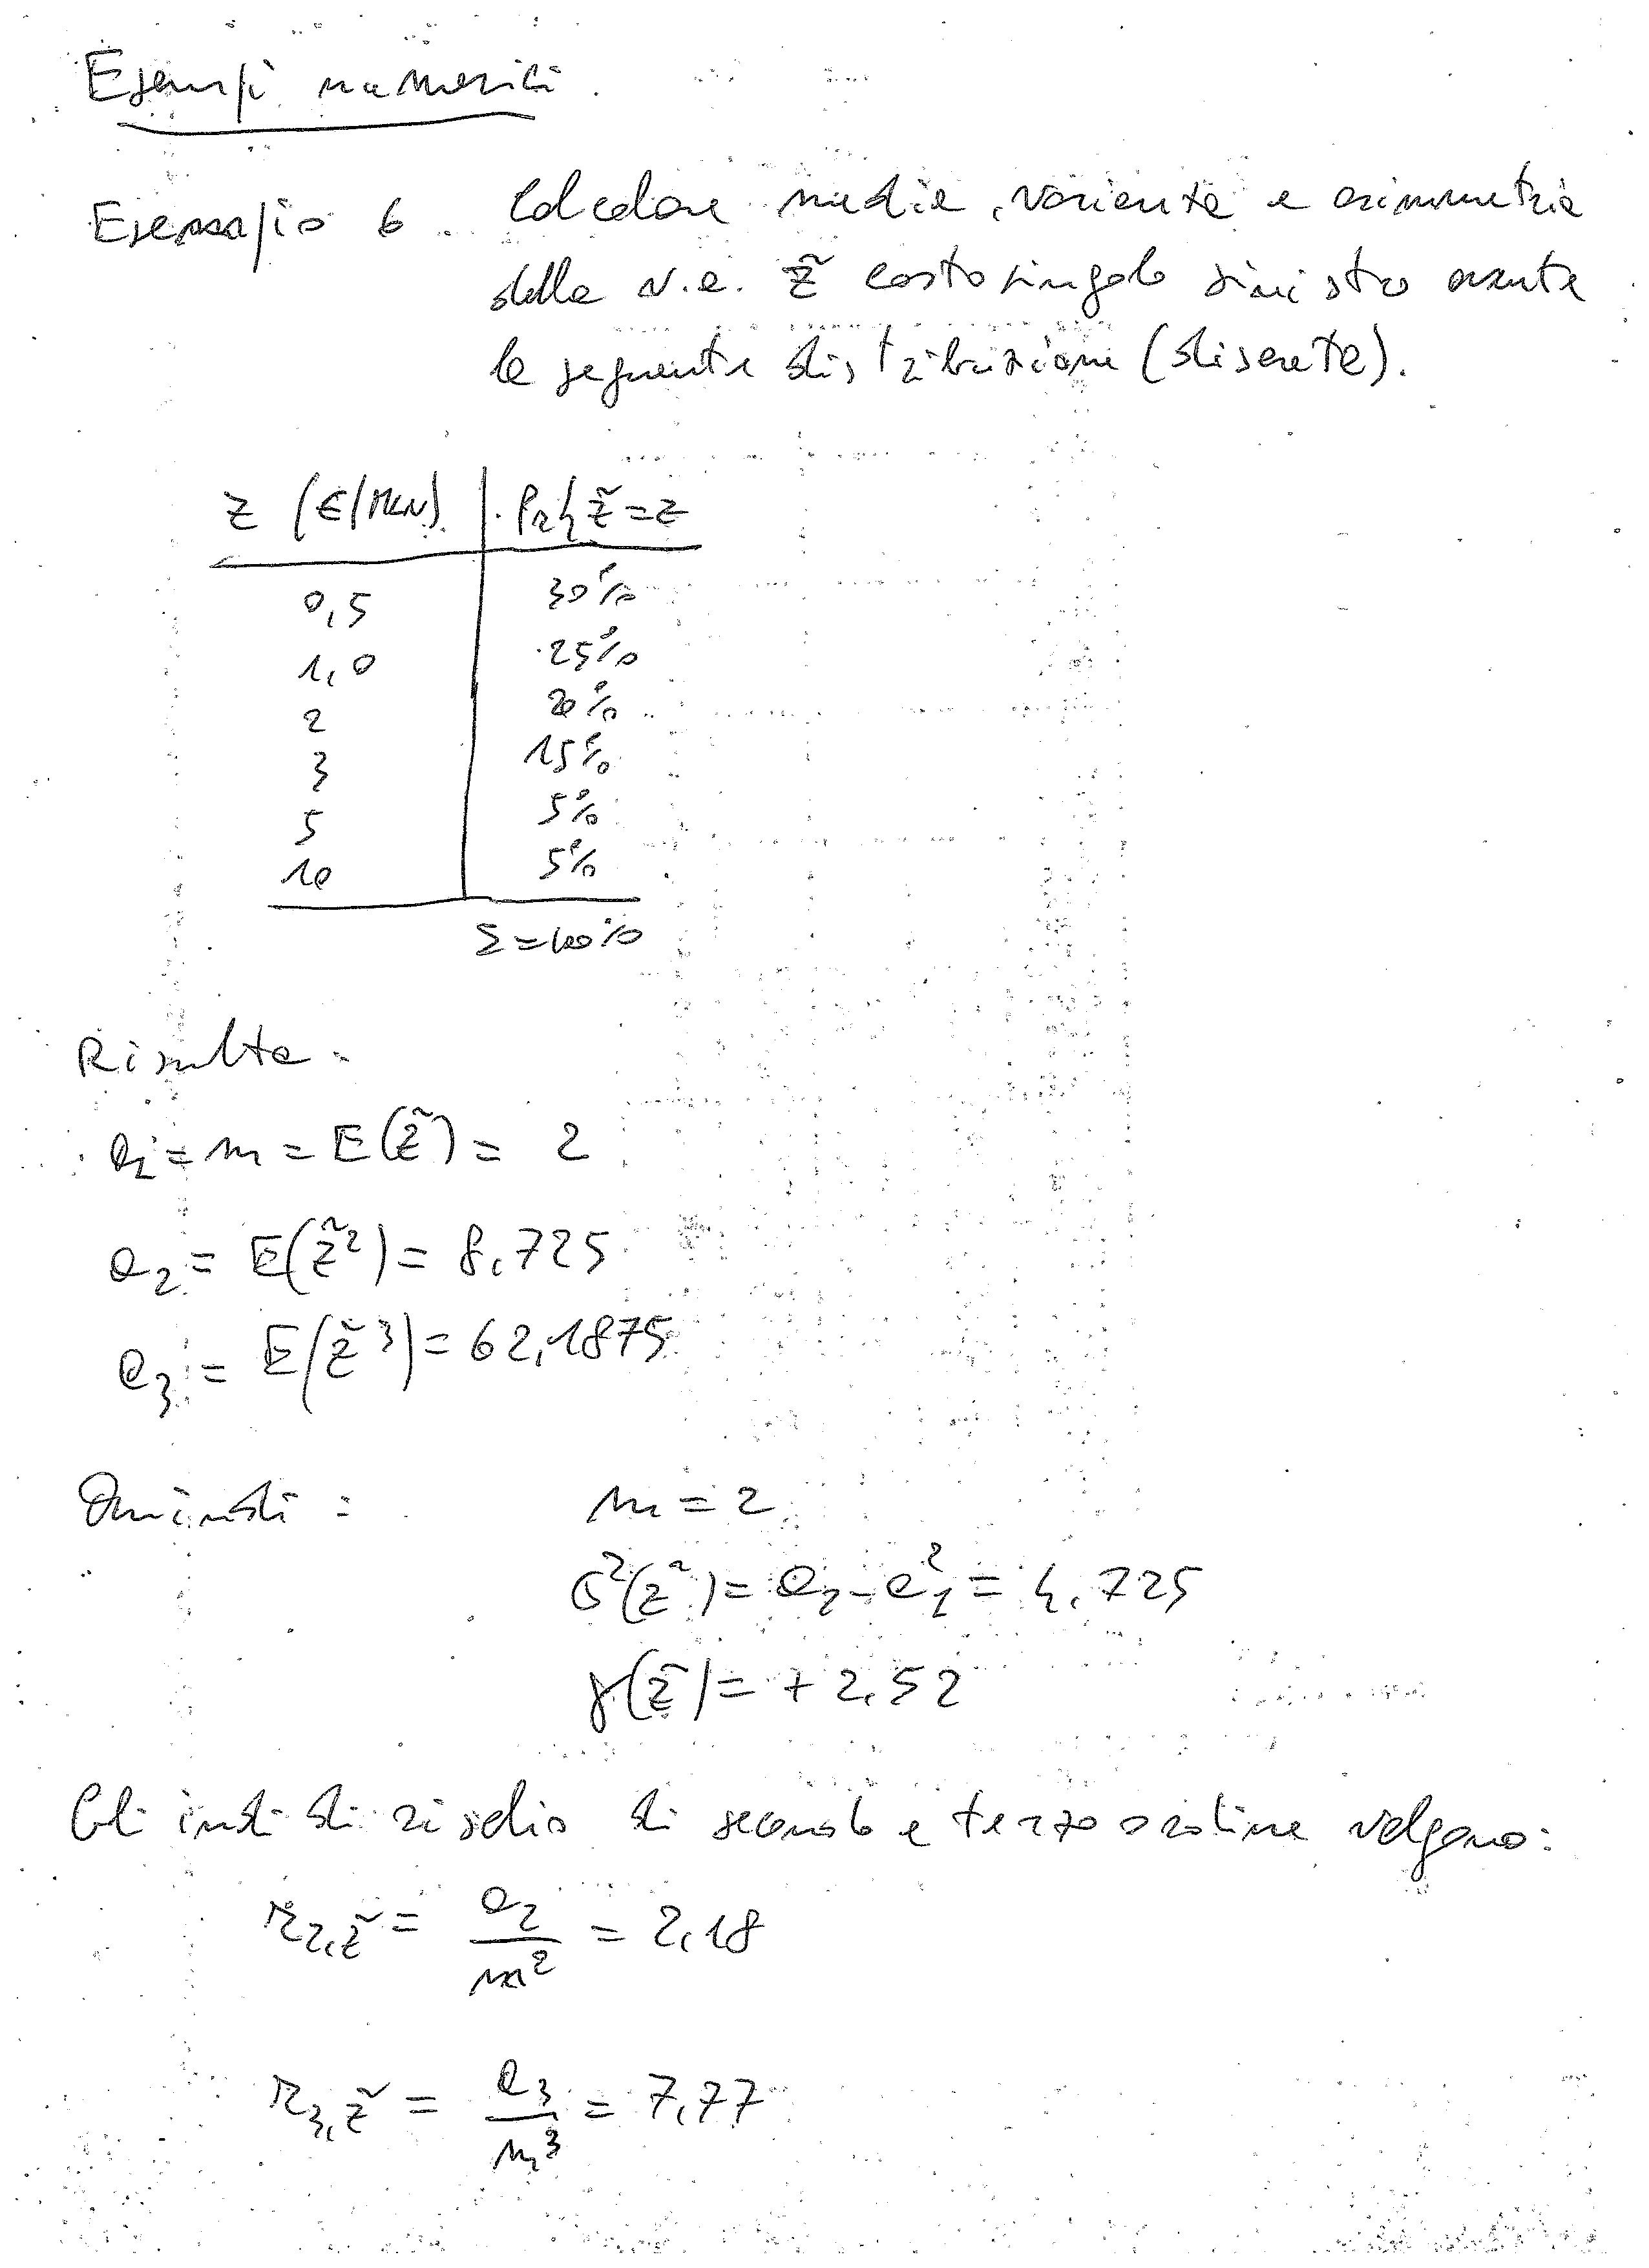 Esempi numerici.
Esempio 6 Calcolare media, varianza e asimmetria
della v.a. Z̃ costo singolo sinistro avente
la seguente distribuzione (discreta).
Z (€/MLN) Pr{Z̃=z
0,5 30%
1,0 25%
2 20%
3 15%
5 5%
10 5%
Σ=100%
Risulta:
a₁ = m = E(Z̃) = 2
a₂ = E(Z̃²) = 8,725
a₃ = E(Z̃³) = 62,1875
Quindi: m = 2
σ²(Z̃) = a₂ - a₁² = 4,725
γ(Z̃) = +2,52
Gli indi di rischio di secondo e terzo ordine valgono:
r₂,Z̃ = a₂/m² = 2,18
r₃,Z̃ = a₃/m³ = 7,77